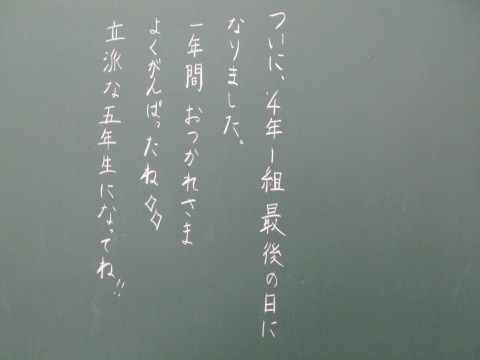 ついに、4年1組最後の日に
なりました。
一年間おつかれさま
よくがんばったね
立派な五年生になってね!!